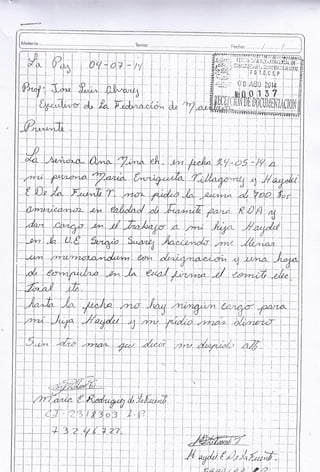 Materia: Tema: Fecha: / /
La Paz 04-07-14
FOTOCOP
08 AGO 2014
00137
RECEPCIÓN DE DOCUMENTACIÓN
Prof. Jose Luis Alvarez
Ejecutivo de la Federación de
Presente.
La señora Ana Zina ch. en fecha 24-05-14 a
mi persona Maria Enriqueta Villagomez y Haydee
E De La Fuente nos pidio la suma de 700 $us
americanos en calidad de tramite para RDA y
dar cargo en el trabajo a mi hija Haydee
en la U.E Sergio Suarez haciendo me llenar
un memorandum con designación y una hoja
de compulsa en la cual firma el comite elec
toral etc.
hasta la fecha no hay ningún cargo para
mi hija Haydee y me pidio mas dinero
Sin otro mas que decir me despido Att.
Maria E Rodriguez de la Fuente
CI. 2318303 L.P.
73246727.
Haydee E De la Fuente.